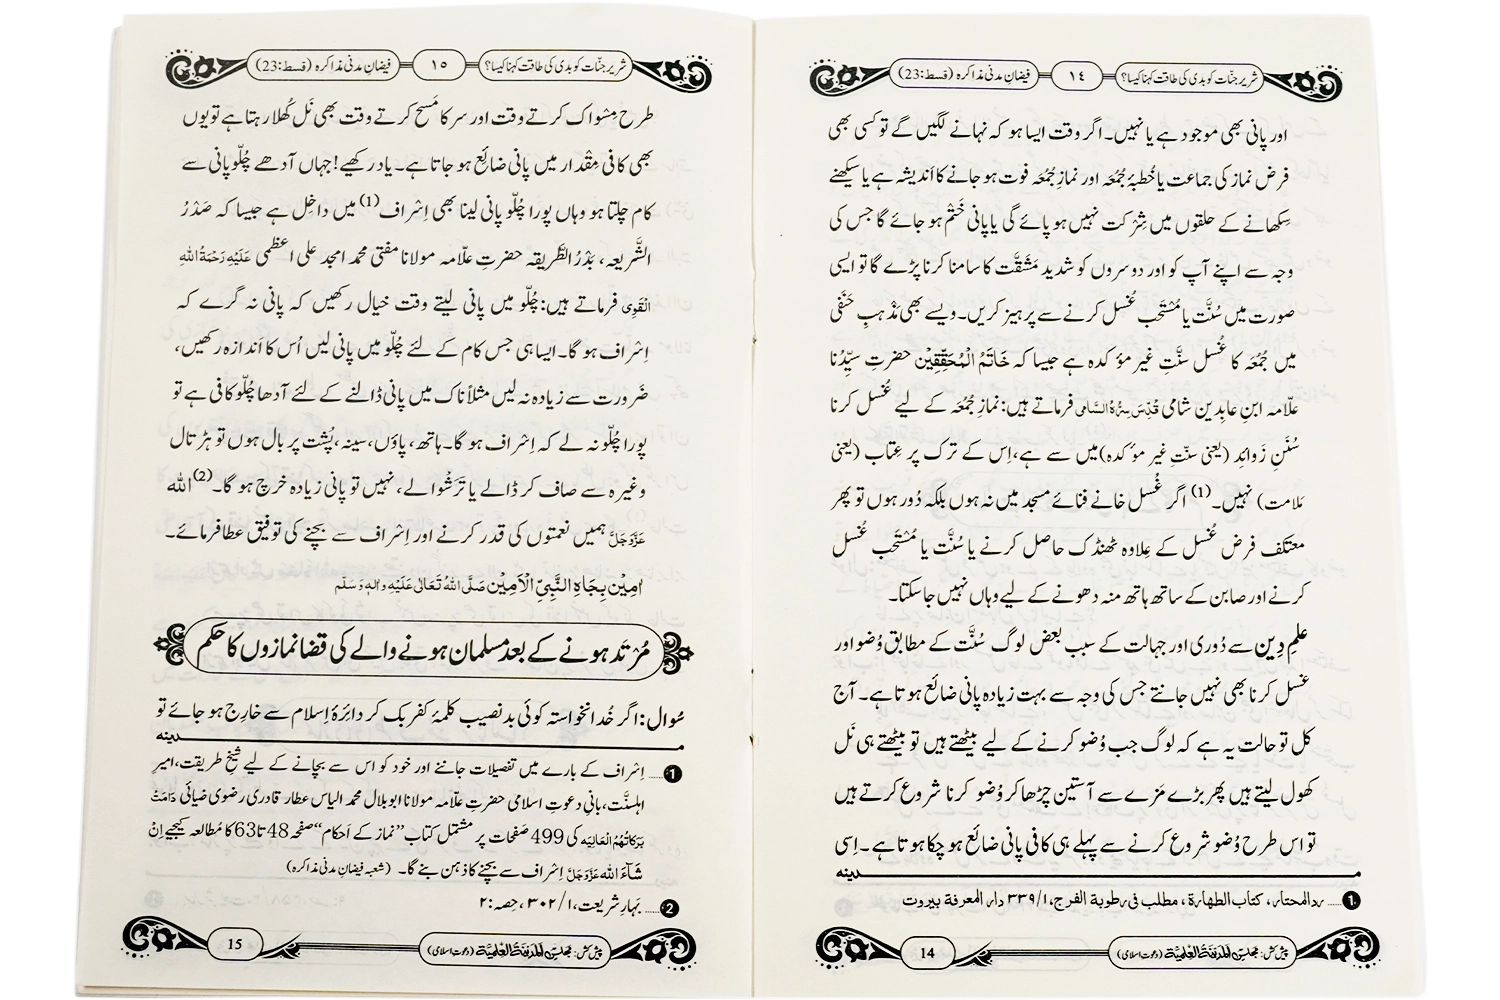 شریر جنّات کو بدی کی طاقت کہنا کیسا؟ ١٤ فیضانِ مدنی مذاکرہ (قسط:23)
اور پانی بھی موجود ہے یا نہیں۔ اگر وقت ایسا ہو کہ نہانے لگیں گے تو کسی بھی
فرض نماز کی جماعت یا خُطبۂ جُمُعَہ اور نمازِ جُمُعَہ فوت ہو جانے کا اَندیشہ ہے یا سیکھنے
سِکھانے کے حلقوں میں شِرْکت نہیں ہو پائے گی یا پانی خَتْم ہو جائے گا جس کی
وجہ سے اپنے آپ کو اور دوسروں کو شدید مَشَقَّت کا سامنا کرنا پڑے گا تو ایسی
صورت میں سُنَّت یا مُسْتَحَب غُسل کرنے سے پرہیز کریں۔ ویسے بھی مَذْہبِ حَنَفی
میں جُمُعَہ کا غُسل سنَّتِ غیر مؤکدہ ہے جیسا کہ خَاتَمُ الْمُحَقِّقِیْن حضرتِ سیِّدُنا
علّامہ ابنِ عابِدین شامی قُدِّسَ سِرُّہُ السَّامِی فرماتے ہیں: نمازِ جُمُعَہ کے لیے غُسل کرنا
سُنَنِ زَوائِد (یعنی سنّتِ غیر مؤکدہ) میں سے ہے، اِس کے ترک پر عِتاب (یعنی
مَلامت) نہیں۔(1) اگر غُسل خانے فنائے مسجد میں نہ ہوں بلکہ دُور ہوں تو پھر
معتکف فرض غُسل کے عِلاوہ ٹھنڈک حاصل کرنے یا سُنَّت یا مُسْتَحَب غُسل
کرنے اور صابن کے ساتھ ہاتھ منہ دھونے کے لیے وہاں نہیں جا سکتا۔
علمِ دِین سے دُوری اور جہالت کے سبب بعض لوگ سُنَّت کے مطابق وُضو اور
غسل کرنا بھی نہیں جانتے جس کی وجہ سے بہت زیادہ پانی ضائع ہوتا ہے۔ آج
کل تو حالت یہ ہے کہ لوگ جب وُضو کرنے کے لیے بیٹھتے ہیں تو بیٹھتے ہی نَل
کھول لیتے ہیں پھر بڑے مَزے سے آستین چڑھا کر وُضو کرنا شروع کرتے ہیں
تو اس طرح وُضو شروع کرنے سے پہلے ہی کافی پانی ضائع ہو چکا ہوتا ہے۔ اِسی
مدینہ
1..... ردالمحتار، کتاب الطھارة، مطلب فی رطوبة الفرج، ١/٣٣٩ دار المعرفة بیروت
پیش کش: مجلس المدینۃ العلمیۃ (دعوتِ اسلامی) 14
شریر جنّات کو بدی کی طاقت کہنا کیسا؟ ١٥ فیضانِ مدنی مذاکرہ (قسط:23)
طرح مِسْواک کرتے وقت اور سر کا مَسح کرتے وقت بھی نَل کُھلا رہتا ہے تو یوں
بھی کافی مِقْدار میں پانی ضائِع ہو جاتا ہے۔ یاد رکھیے! جہاں آدھے چُلّو پانی سے
کام چلتا ہو وہاں پورا چُلّو پانی لینا بھی اِسْراف(1) میں داخِل ہے جیسا کہ صَدْرُ
الشَّریعہ، بَدْرُ الطَّریقہ حضرتِ علّامہ مولانا مفتی محمد امجد علی اعظمی عَلَیْہِ رَحْمَۃُ اللّٰہِ
الْقَوِی فرماتے ہیں: چُلّو میں پانی لیتے وقت خیال رکھیں کہ پانی نہ گرے کہ
اِسْراف ہو گا۔ ایسا ہی جس کام کے لئے چُلّو میں پانی لیں اُس کا اَندازہ رکھیں،
ضَرورت سے زیادہ نہ لیں مثلاً ناک میں پانی ڈالنے کے لئے آدھا چُلّو کافی ہے تو
پورا چُلّو نہ لے کہ اِسْراف ہو گا۔ ہاتھ، پاؤں، سینہ، پُشت پر بال ہوں تو ہڑتال
وغیرہ سے صاف کر ڈالے یا تَرَشْوا لے، نہیں تو پانی زیادہ خرچ ہو گا۔(2) اللّٰہ
عَزَّوَجَلَّ ہمیں نعمتوں کی قدر کرنے اور اِسْراف سے بچنے کی توفیق عطا فرمائے۔
اٰمِیْن بِجَاہِ النَّبِیِّ الْاَمِیْن صَلَّی اللّٰہُ تَعَالٰی عَلَیْہِ واٰلہٖ وَسَلَّم
مُرتَد ہونے کے بعد مسلمان ہونے والے کی قضا نمازوں کا حکم
سُوال: اگر خُدانخواستہ کوئی بدنصیب کلمۂ کفر بک کر دائِرۂ اِسلام سے خارِج ہو جائے تو
مدینہ
1..... اِسْراف کے بارے میں تفصیلات جاننے اور خود کو اس سے بچانے کے لیے شیخِ طریقت، امیرِ
اہلسنَّت، بانیِ دعوتِ اسلامی حضرتِ علّامہ مولانا ابوبلال محمد الیاس عطار قادری رضوی ضیائی دَامَتْ
بَرَکَاتُہُمُ الْعَالِیَہ کی 499 صَفحات پر مشتمل کتاب ”نماز کے اَحکام“ صفحہ 48 تا 63 کا مُطالعہ کیجیے اِنْ
شَآءَ اللّٰہ عَزَّوَجَلَّ اِسْراف سے بچنے کا ذہن بنے گا۔ (شعبہ فیضانِ مدنی مذاکرہ)
2..... بہارِ شریعت، ١/٣٠٢، حصہ: ٢
پیش کش: مجلس المدینۃ العلمیۃ (دعوتِ اسلامی) 15